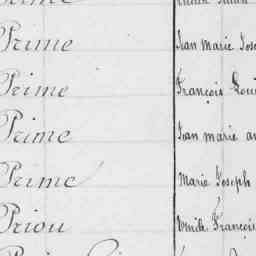 Prime Jean Marie Jose
Prime François Loui
Prime Jean marie an
Prime Marie Joseph
Priou Emile François